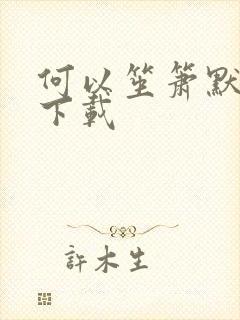 何以笙箫默
下载
許木生